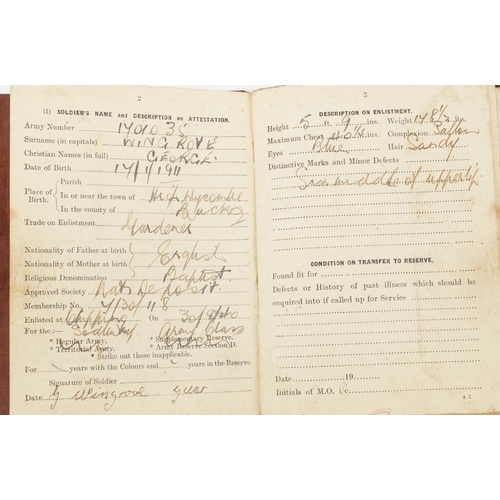 2
(1) SOLDIER'S NAME and DESCRIPTION on ATTESTATION.
Army Number
Surname (in capitals) WINGROVE
Christian Names (in full) GEORGE
Date of Birth 17/1/1911
Place of Birth.
Parish
In or near the town of High Wycombe
In the county of Bucks
Trade on Enlistment Gardener
Nationality of Father at birth
Nationality of Mother at birth
English
Religious Denomination Baptist
Approved Society Nat Deposit
Membership No.
Enlisted at Chipping On
For the:— Sodbury Army Class
* Regular Army. * Supplementary Reserve.
* Territorial Army. * Army Reserve Section D.
* Strike out those inapplicable.
For years with the Colours and years in the Reserve.
Signature of Soldier
Date G Wingrove Gunr
3
DESCRIPTION ON ENLISTMENT.
Height 5 ft. 9 ins. Weight lbs.
Maximum Chest ins. Complexion
Eyes Blue Hair Sandy
Distinctive Marks and Minor Defects
Scar middle of upper lip
CONDITION ON TRANSFER TO RESERVE.
Found fit for
Defects or History of past illness which should be
enquired into if called up for Service
Date 19
Initials of M.O. i/c
A 2